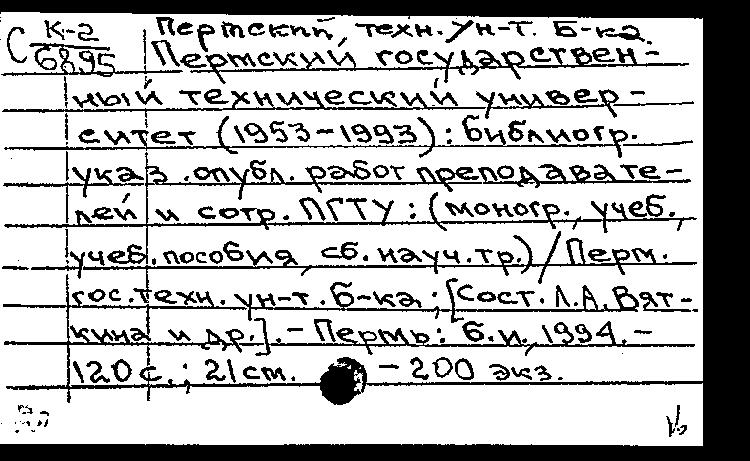 С К-2 Пермский, техн. Ун-т. Б-ка.
6895 Пермский государствен-
ный технический универ-
ситет (1953-1993): библиогр.
указ. опубл. работ преподавате-
лей и сотр. ПГТУ: (моногр., учеб.,
учеб. пособия, сб. науч. тр.) / Перм.
гос. техн. ун-т. Б-ка; [Сост. Л.А. Вят-
кина и др.]. - Пермь: б.и., 1994. -
120 с.; 21 см. - 200 экз.